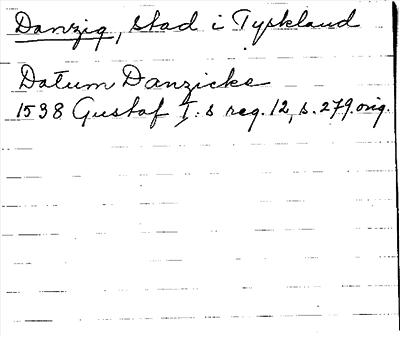 Danzig, stad i Tyskland
Datum Danzicke
1538 Gustaf I:s reg. 12, s. 279. orig.